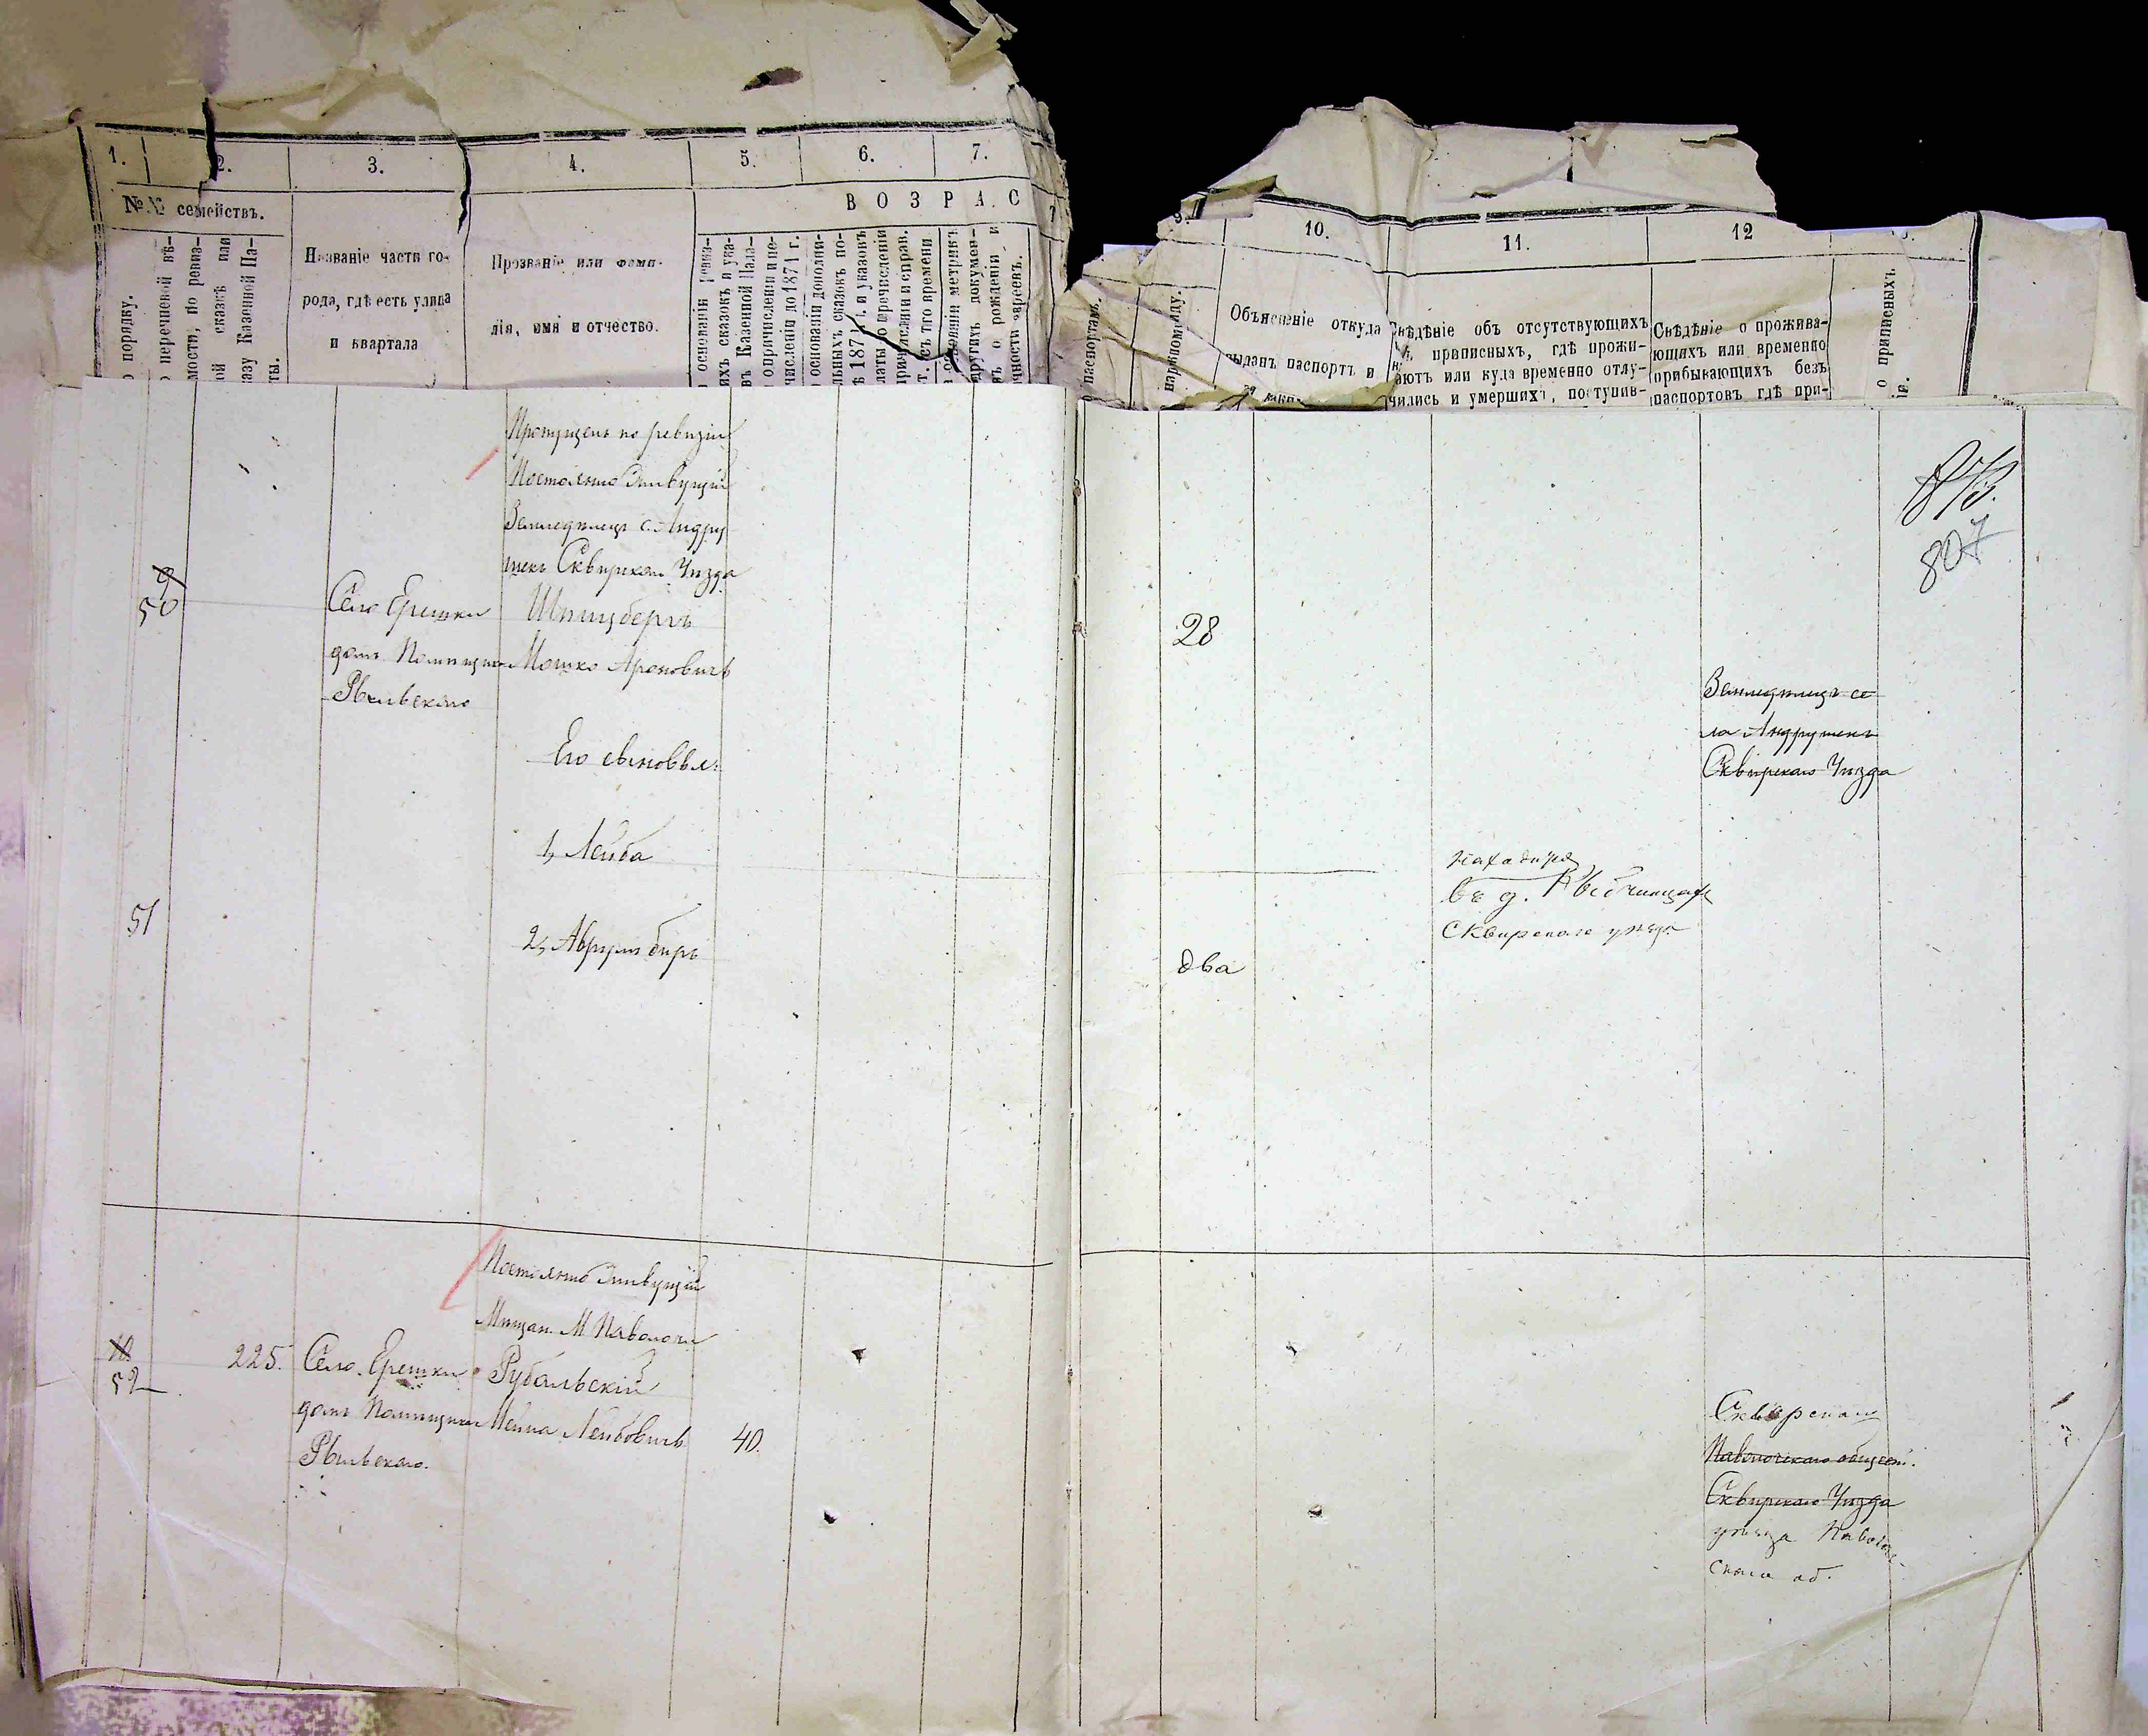 1.
2.
3.
4.
5.
6.
7.
№№ семействъ.
В О З Р А С
порядку.
перечневой вѣ-
мости, по ревиз-
ой сказкѣ или
казу Казенной Па-
ты.
Названіе части го-
рода, гдѣ есть улица
и квартала
Прозваніе или фами-
лія, имя и отчество.
основаніи ревиз-
ихъ сказокъ и ука-
въ Казенной Пала-
о причисленіи и пе-
численіи до 1871 г.
основаніи дополни-
льныхъ сказокъ по-
и указовъ
латы о перечисленіи
причисленіи и справ.
съ того времени
основаніи метрикъ
другихъ докумен-
ъ о рожденіи и
чности евреевъ.
9.
10.
11.
12
паспортамъ.
наружному виду.
Объясненіе откуда
выданъ паспортъ и
Свѣдѣніе объ отсутствующихъ
приписныхъ, гдѣ прожи-
ваютъ или куда временно отлу-
чились и умершихъ, поступив-
Свѣдѣніе о прожива-
ющихъ или временно
прибывающихъ безъ
паспортовъ гдѣ при-
о приписныхъ
Пропущенъ по ревизіи
Постоянно Живущій
Земледѣлецъ с. Андру
шекъ Сквирскаго Уѣзда
9
50
Село Ерешки
домъ Помѣщика
Шпицбергъ
Мошко Ароновичъ
Его сыновья:
1, Лейба
51
2, Аврумъ беръ
807
28
Земледѣлецъ се
ла Андрушекъ
Сквирскаго Уѣзда
находится
въ д.
Сквирскаго уѣзда
два
Постоянно Живущій
Мѣщан. М Паволочи
10
52
225.
Село Ерешки
домъ Помѣщика
Рубальскій
Лейбовичъ
40.
Сквирскаго
Паволочскаго общест.
Сквирскаго Уѣзда
уѣзда Паволоч-
скаго об.